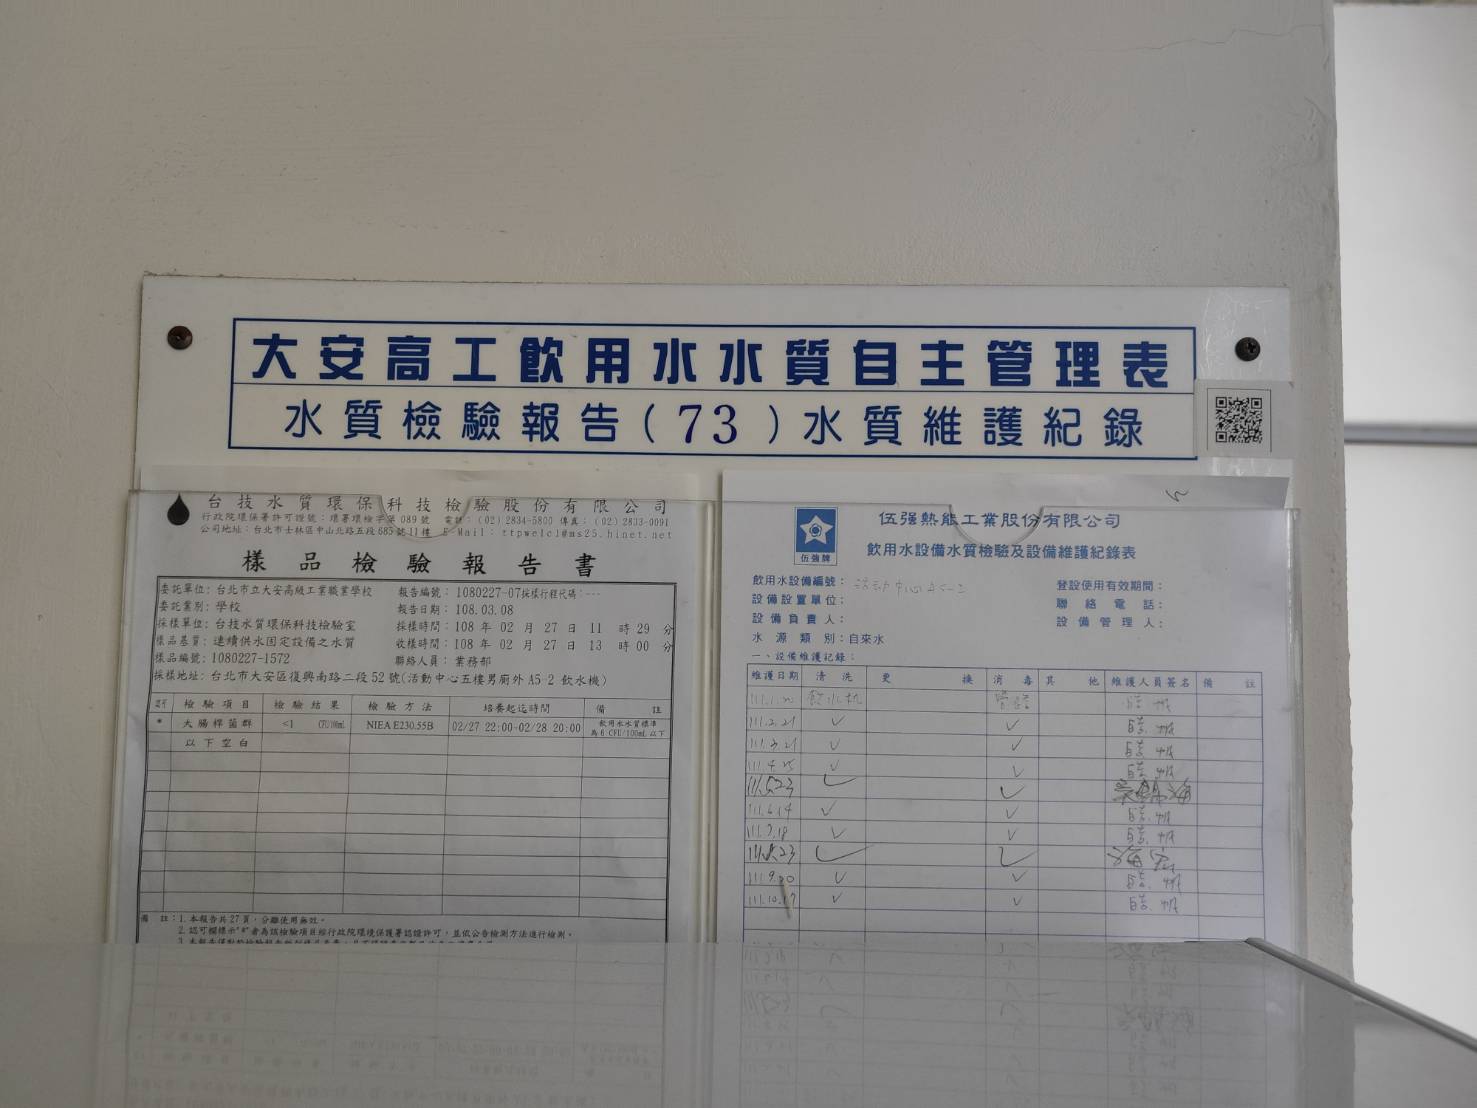 大安高工飲用水水質自主管理表
水質檢驗報告(73)水質維護紀錄
台技水質環保科技檢驗股份有限公司
行政院環保署許可證號：環署環檢字第089號 電話：(02)2834-5800 傳真：(02)2833-0091
公司地址：台北市士林區中山北路五段685號11樓 E-Mail：ttpwelcl@ms25.hinet.net
樣品檢驗報告書
委託單位：台北市立大安高級工業職業學校 報告編號：1080227-07採樣行程代碼：---
委託業別：學校 報告日期：108.03.08
採樣單位：台技水質環保科技檢驗室 採樣時間：108 年 02 月 27 日 11 時 29 分
樣品基質：連續供水固定設備之水質 收樣時間：108 年 02 月 27 日 13 時 00 分
樣品編號：1080227-1572 聯絡人員：業務部
採樣地址：台北市大安區復興南路二段52號(活動中心五樓男廁外A5-2 飲水機)
檢驗項目 檢驗結果 檢驗方法 培養起迄時間 備註
* 大腸桿菌群 <1 CFU/100mL NIEA E230.55B 02/27 22:00-02/28 20:00 飲用水水質標準
為 6 CFU/100mL 以下
以下空白
備 註：1.本報告共27頁，分離使用無效。
2.認可欄標示"*"者為該檢驗項目經行政院環境保護署認證許可，並依公告檢測方法進行檢測。
伍強牌
伍强熱能工業股份有限公司
飲用水設備水質檢驗及設備維護紀錄表
飲用水設備編號：活動中心A5-2 登設使用有效期間：
設備設置單位： 聯絡電話：
設備負責人： 設備管理人：
水源類別：自來水
一、設備維護記錄：
維護日期 清洗 更換 消毒 其他 維護人員簽名 備註
飲水机
111.2.21 ✓ ✓
111.3.21 ✓ ✓
111.4.25 ✓ ✓
111.5.23 ✓ ✓
111.6.14 ✓ ✓
111.7.18 ✓ ✓
111.8.23 ✓ ✓
111.9.20 ✓ ✓
111.10.17 ✓ ✓